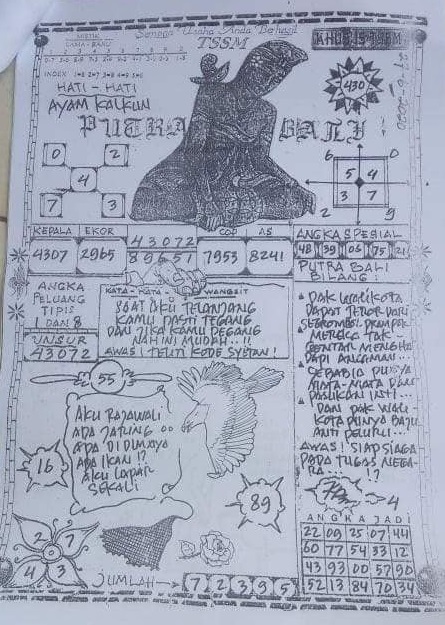 Semoga Usaha Anda Berhasil
TSSM
MISTIK
LAMA - BARU
1 2 3 4 5 6 7 8 9 0
INDEX 1=6 2=7 3=8 4=9 5=0
HATI - HATI
AYAM KALKUN
PUTRA BALI
430
0 2
4
7 3
6 0
5 4
3 7
2 9
KEPALA EKOR
COP AS
4307 2965
43072
89651
7953 8241
ANGKA SPESIAL
48 39 06 75 21
PUTRA BALI
BILANG :
ANGKA
PELUANG
TIPIS
1 DAN 8
UNSUR
43072
KATA - KATA WANGSIT
SAAT AKU TELANJANG
KAMU PASTI TEGANG
DAN JIKA KAMU PEGANG
NAH INI MUDAH..!!
AWAS! TELITI KODE SYETAN!
PAK WALIKOTA
DAPAT TEROR DARI
SEGEROMBOL
MEREKA TAK
DARI ANCAMAN...
MATA-MATA DAN
PASUKAN INTI...
DAN PAK WALI-
KOTA PUNYA BAJU
ANTI PELURU...
AWAS! SIAP SIAGA
PADA TUGAS NEGA-
RA !?
4
55
AKU RAJAWALI
ADA JATUNG
APA DI DUNIAYA
ADA IKAN !?
AKU LAPAR
SEKALI
16
89
2 7
4 3
JUMLAH → 7 2 3 9 5
ANGKA JADI
22 09 25 07 44
60 77 54 33 12
43 93 00 57 90
52 13 84 70 34